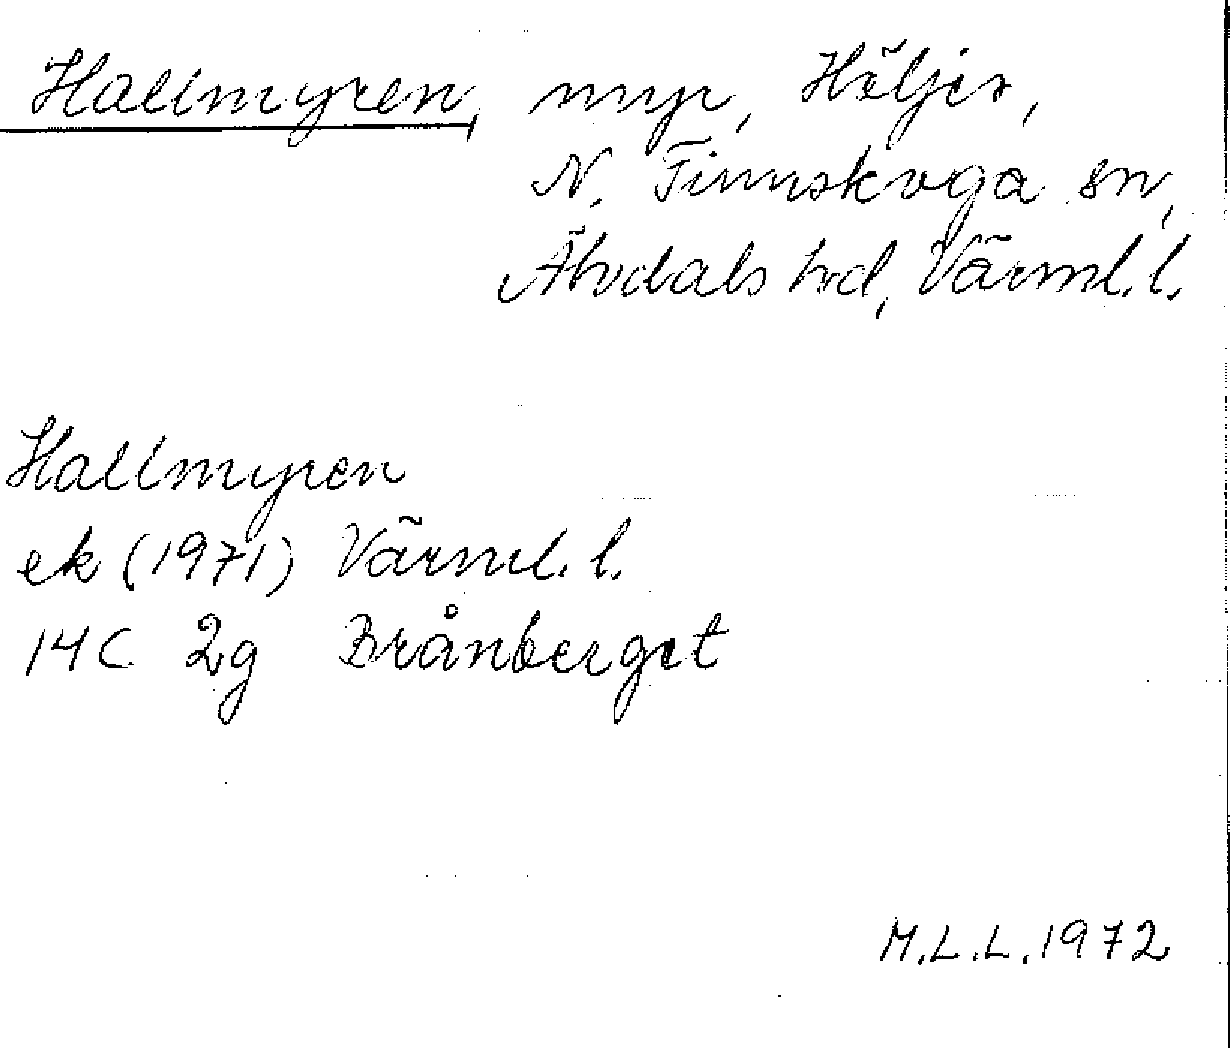 Hallmyren, myr, Höljes,
N. Finnskoga sn,
Älvdals hd, Värml. l.
Hallmyren
ek (1971) Värml. l.
14C 2g Brånberget
M.L.L. 1972